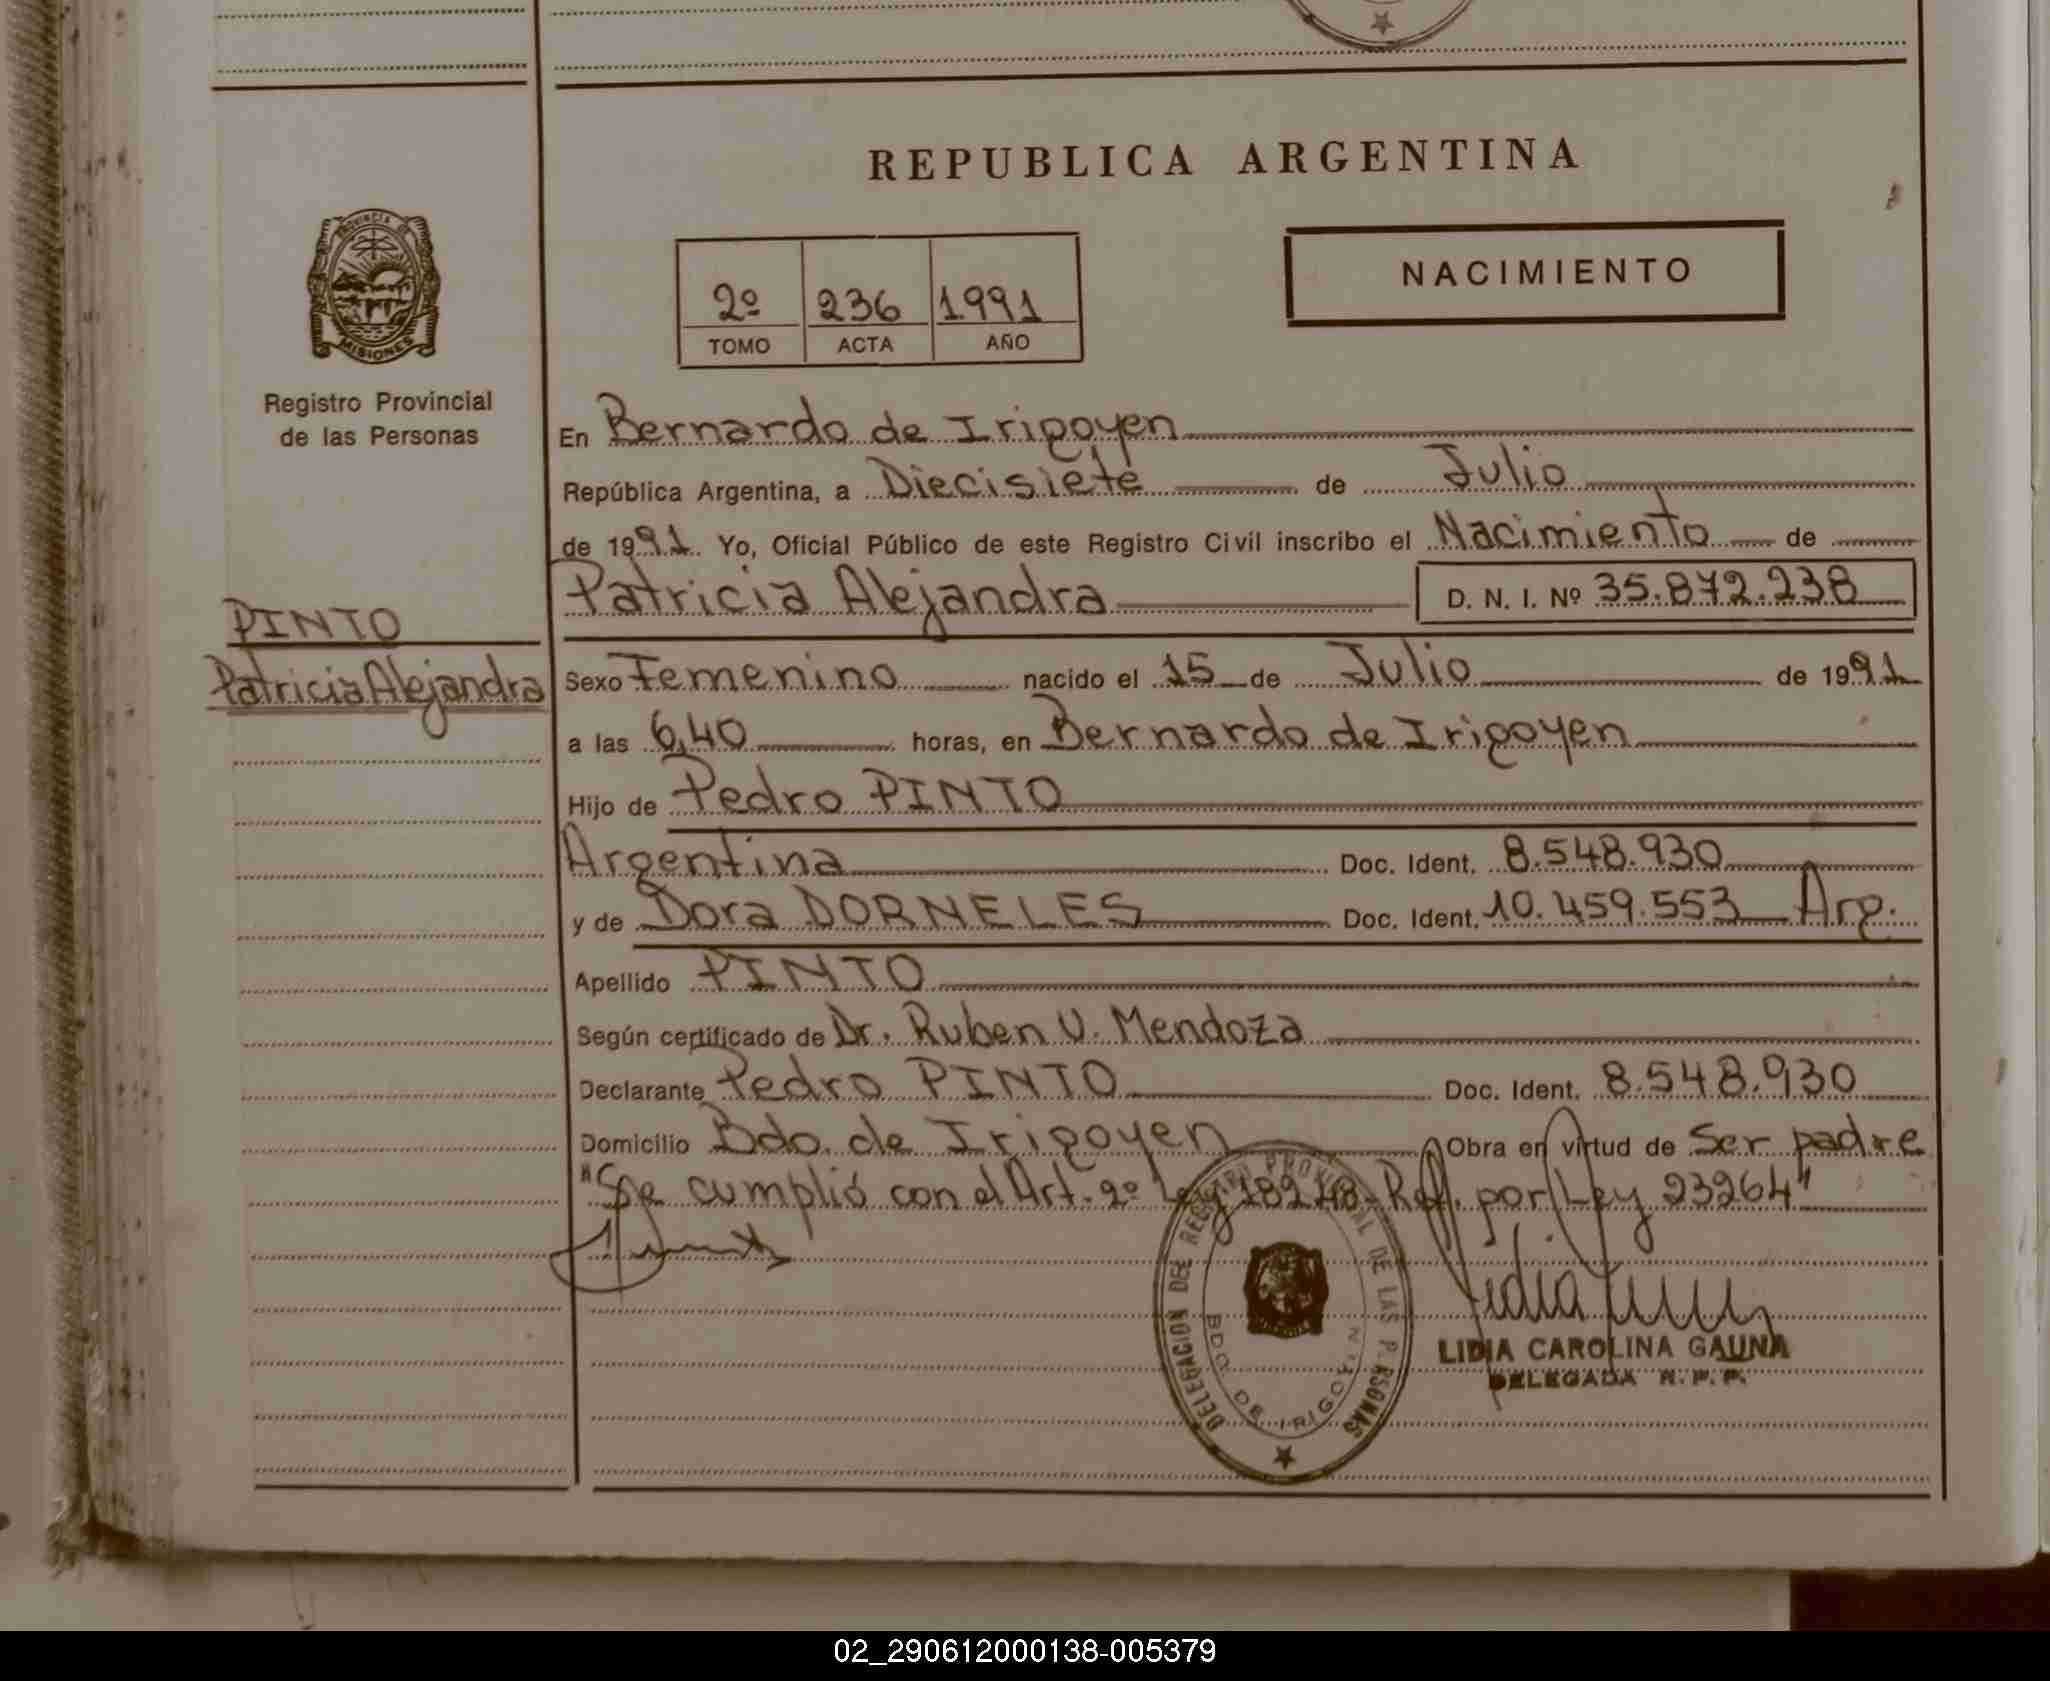 REPUBLICA ARGENTINA
PROVINCIA DE
MISIONES
Registro Provincial
de las Personas
2º 236 1.991
TOMO ACTA AÑO
NACIMIENTO
En Bernardo de Irigoyen
República Argentina, a Diecisiete de Julio
de 1991. Yo, Oficial Público de este Registro Civil inscribo el Nacimiento de
Patricia Alejandra D. N. I. Nº 35.872.238
PINTO
Patricia Alejandra
Sexo Femenino nacido el 15 de Julio de 1991
a las 6,40 horas, en Bernardo de Irigoyen
Hijo de Pedro PINTO
Argentina Doc. Ident. 8.548.930
y de Dora DORNELES Doc. Ident. 10.459.553 Arg.
Apellido PINTO
Según certificado de Dr. Ruben V. Mendoza
Declarante Pedro PINTO Doc. Ident. 8.548.930
Domicilio Bdo. de Irigoyen Obra en virtud de Ser padre
"Se cumplió con el Art. 2º Ley 18248- Ref. por Ley 23264"
DELEGACION DEL REGISTRO PROVINCIAL DE LAS PERSONAS
BDO. DE IRIGOYEN
LIDIA CAROLINA GAUNA
DELEGADA R. P. P.
02_290612000138-005379